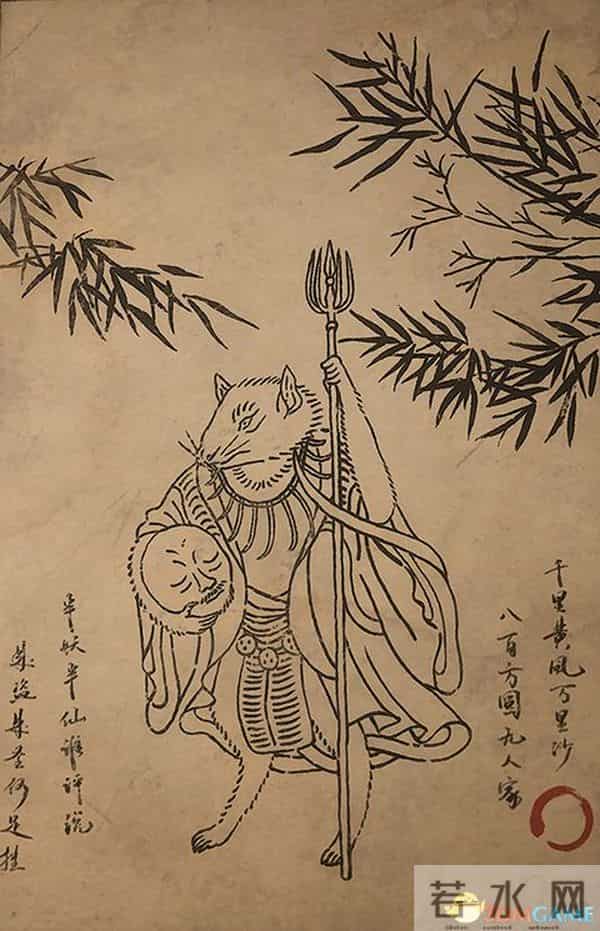 千里黄风万里沙
八百方圆人家
半妖半仙谁评说
盗圣何足挂
若水网
GAME